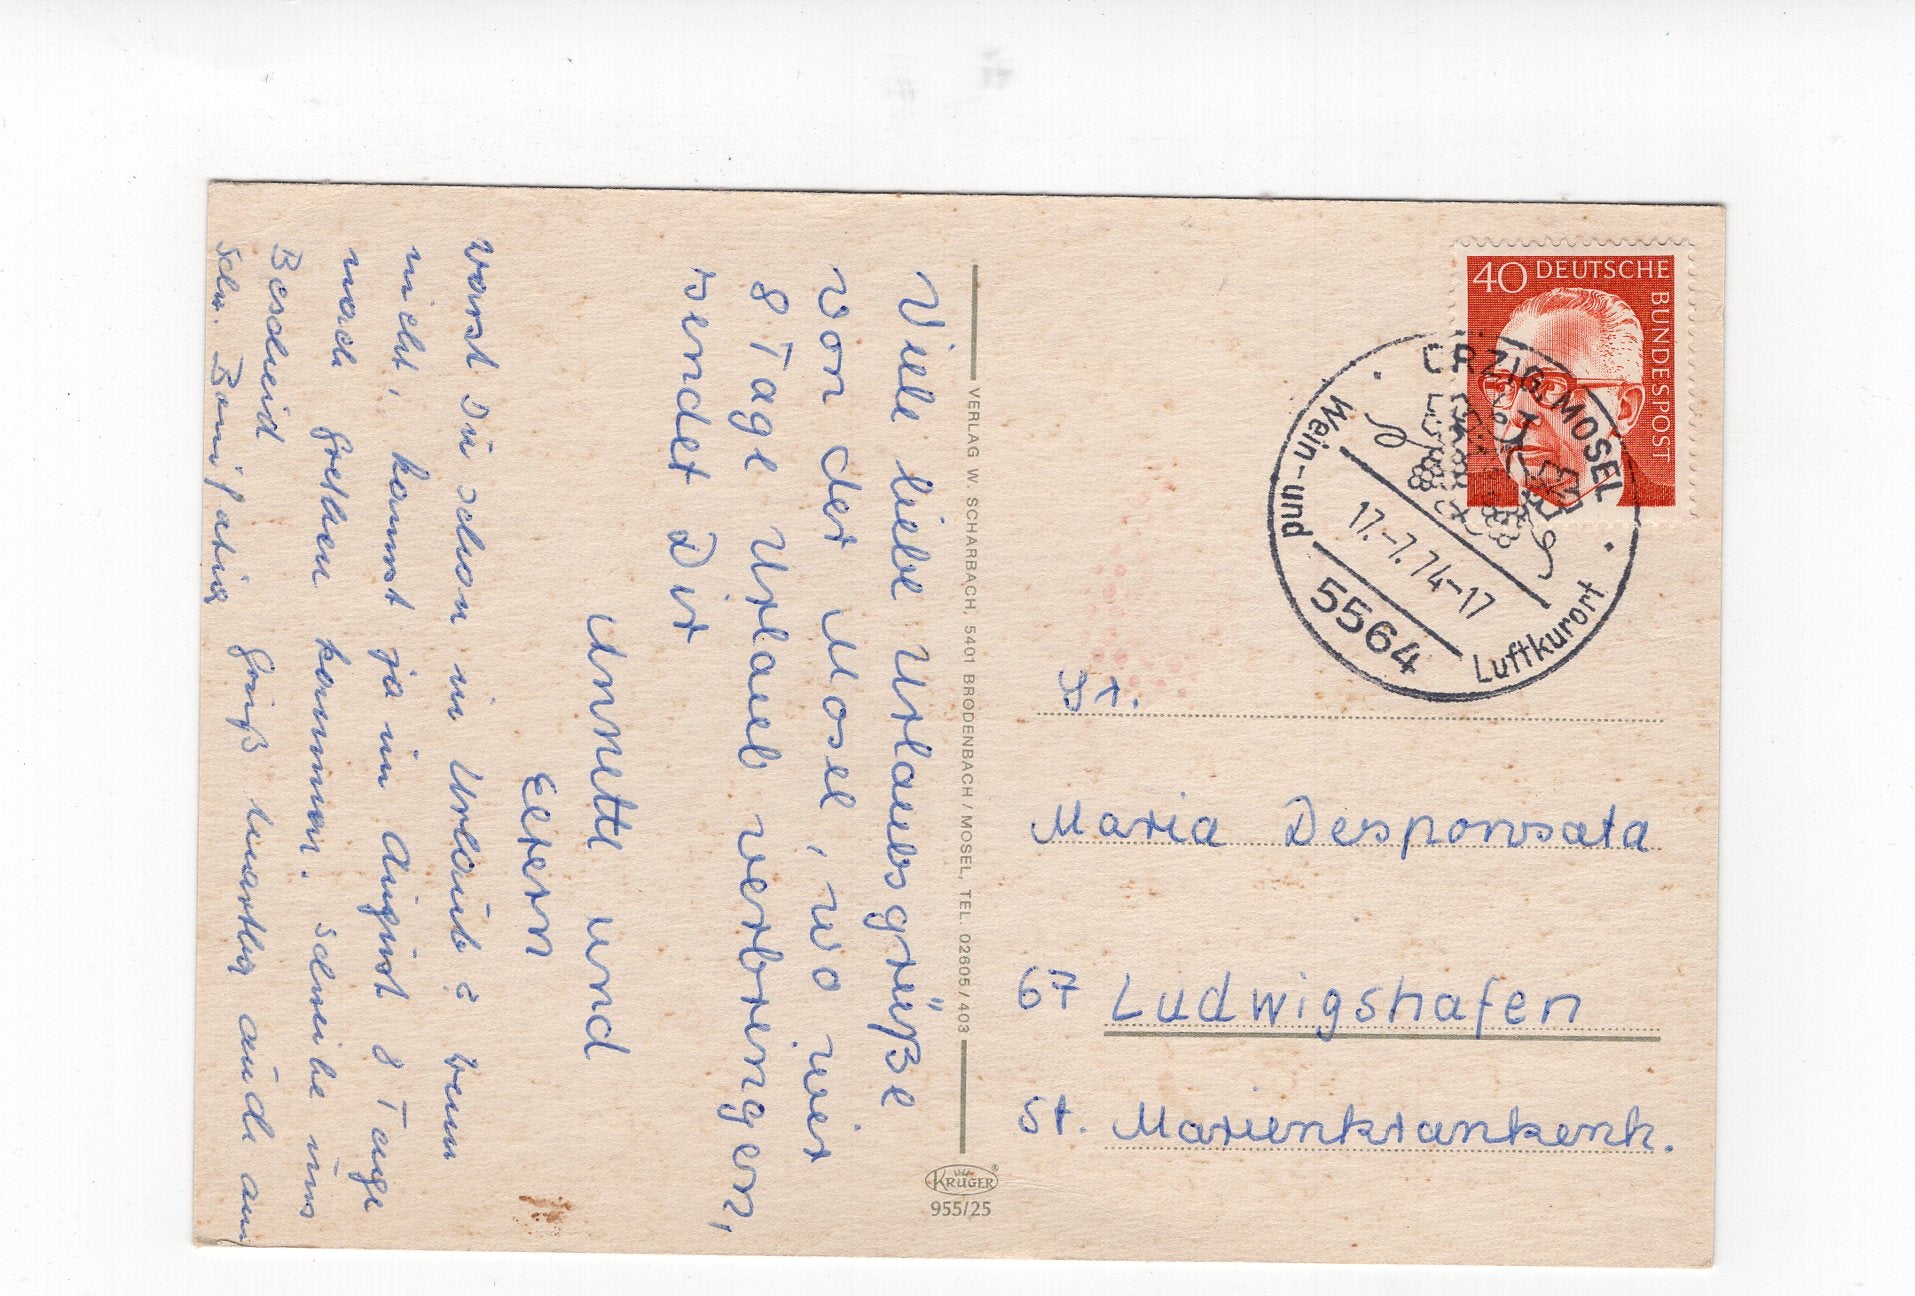 Viele liebe Urlaubsgrüße
von der Mosel, wo wir
8 Tage Urlaub verbringen,
sendet Dir
Annette und
Eltern
warst Du schon in Urlaub? wenn
nicht, kannst ja im August 8 Tage
nach Gretchen kommen. Schreibe uns
Bescheid
Gruß auch an
Schw. Bonifatia
VERLAG W. SCHARBACH, 5401 BRODENBACH / MOSEL, TEL. 02605 / 403
KRÜGER
955/25
40 DEUTSCHE BUNDESPOST
ÜRZIG, MOSEL
17.-7.74-17
5564
Wein- und Luftkurort
Sr.
Maria Desponsata
67 Ludwigshafen
St. Marienkrankenh.